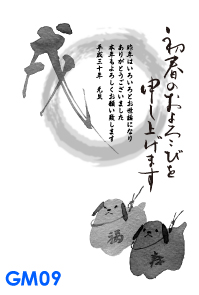 初春のおよろこびを
申し上げます
昨年はいろいろとお世話になり
ありがとうございました
本年もよろしくお願い致します
平成三十年 元旦
戌
福
寿
GM09